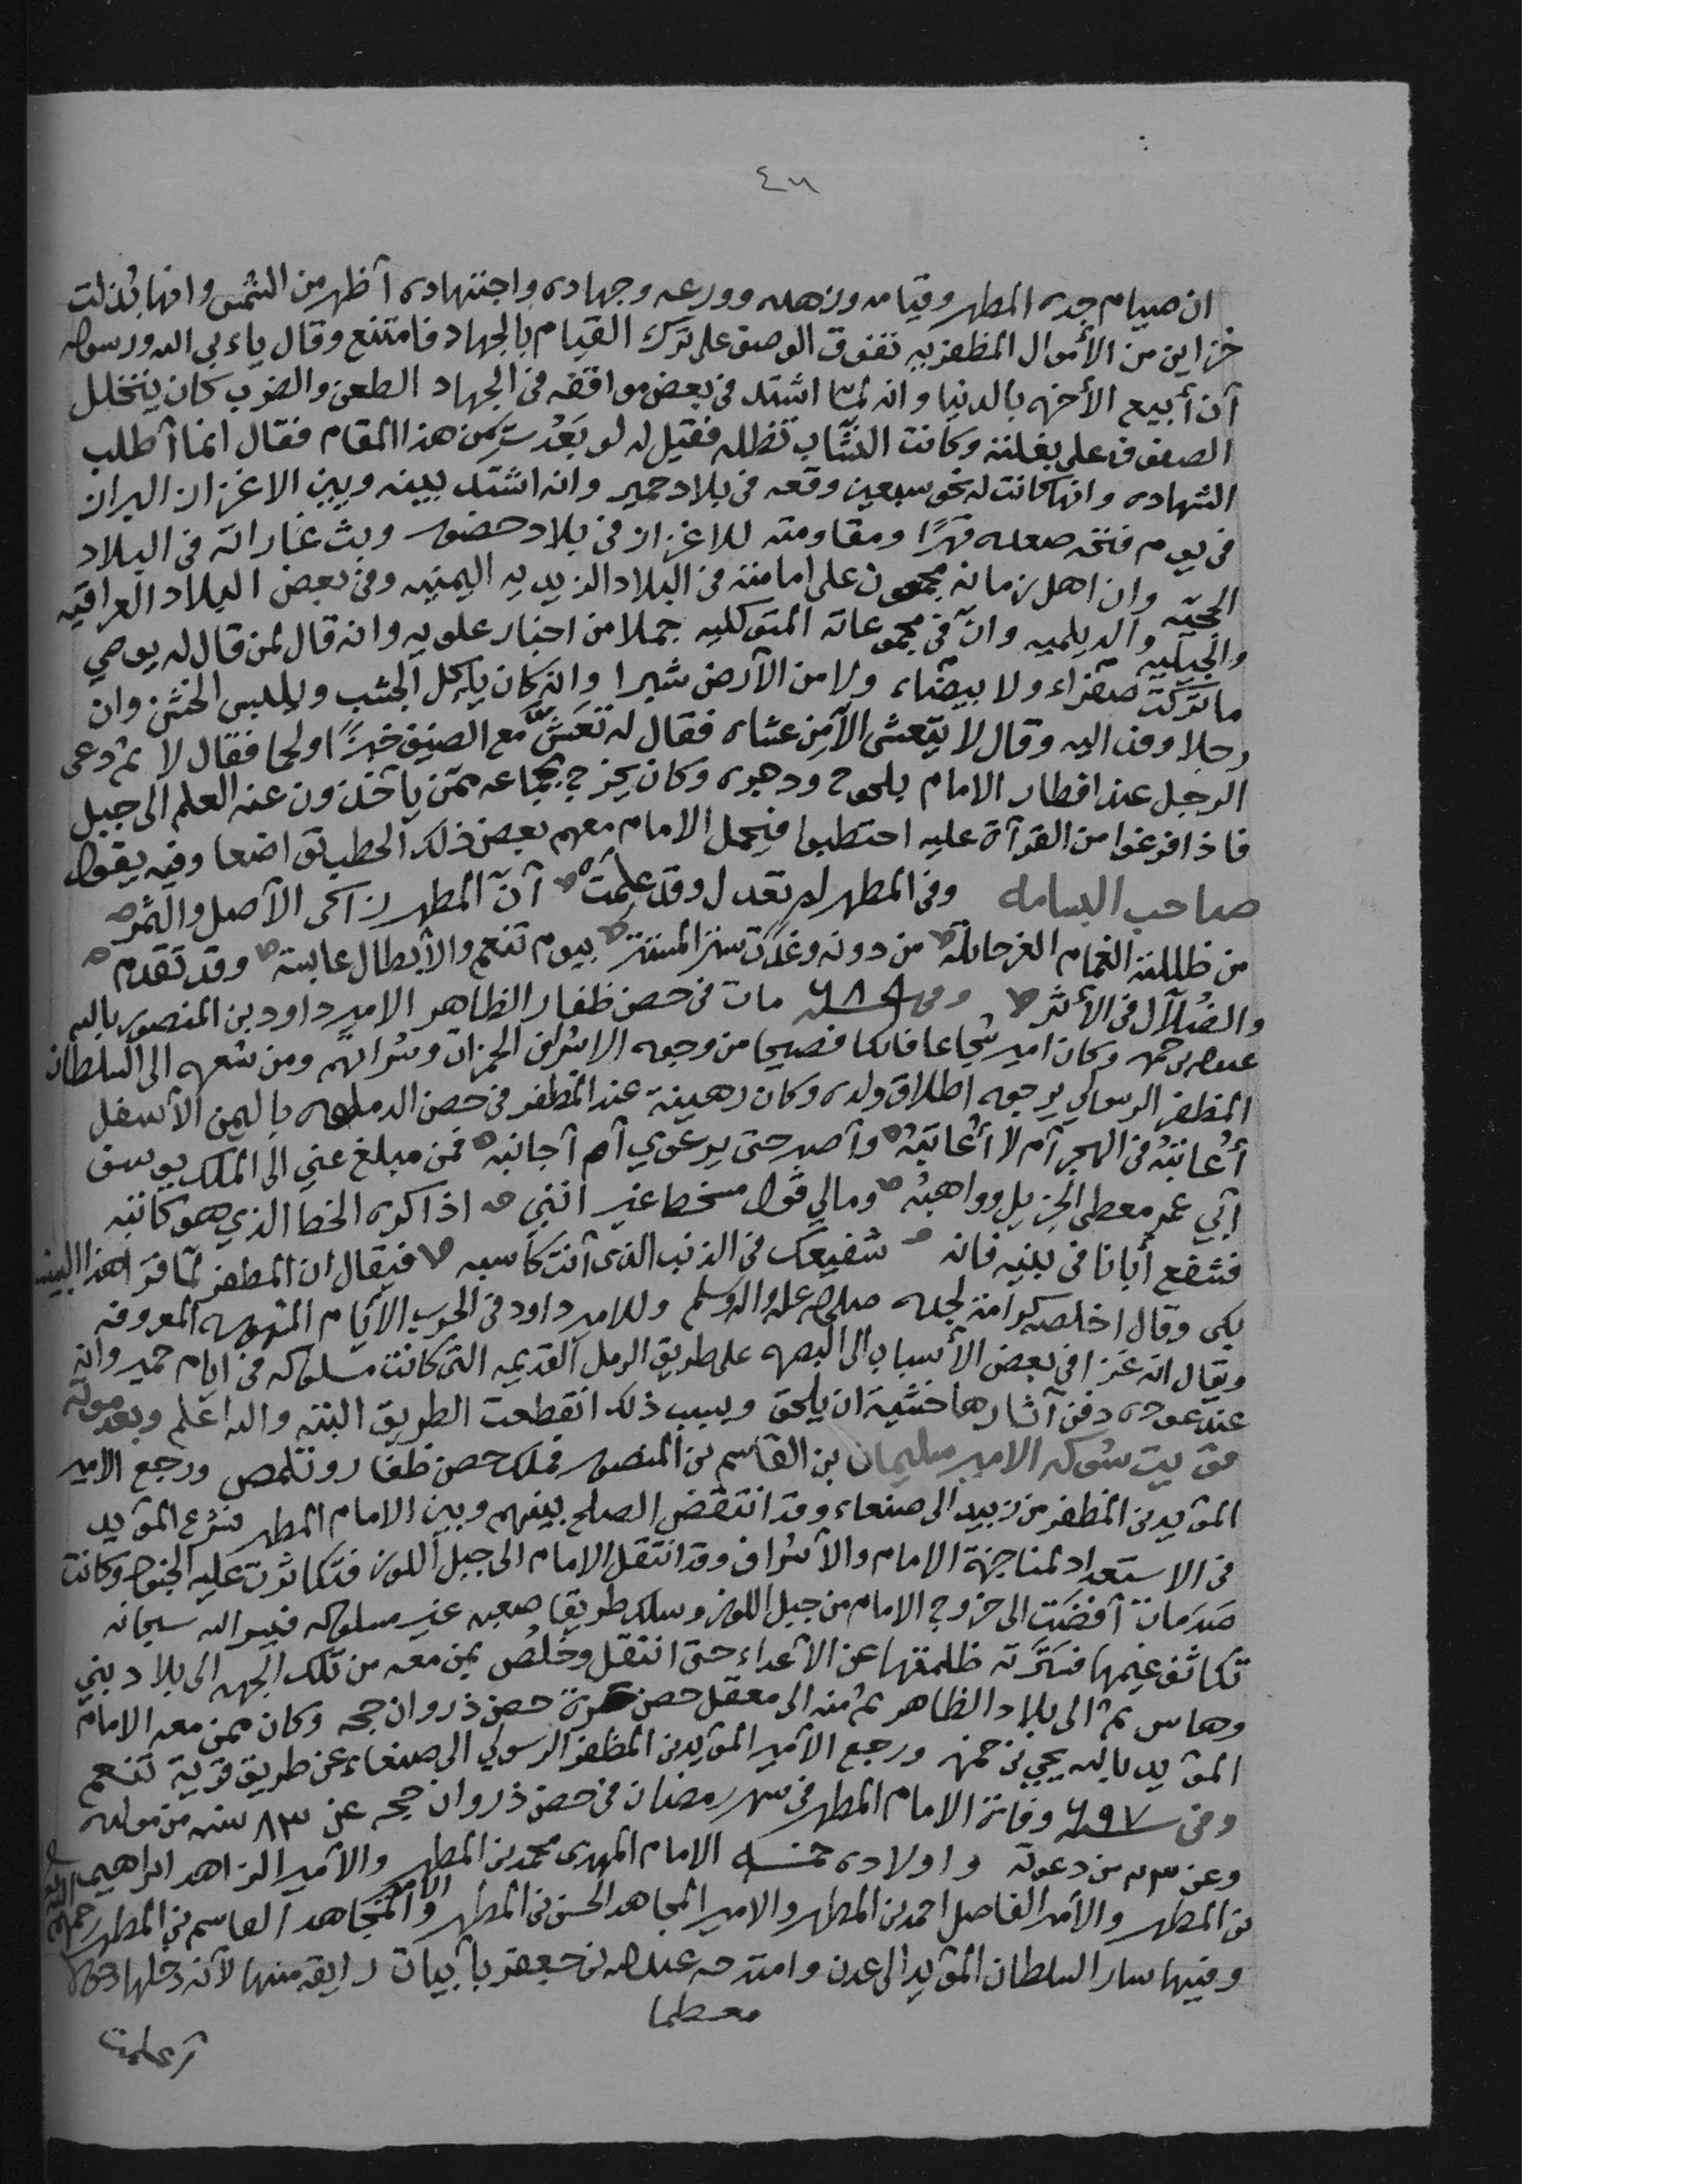 ٤٦
ان صيام جده المطهر وقيامه وزهده وورعه وجهاده واجتهاده أظهر من الشمس وانها بُذلت
خزاين من الأموال المظفريه تفوق الوصف على ترك القيام بالجهاد فامتنع وقال ياءبى الله ورسوله
أن أبيع الأخره بالدنيا وانه لمّا اشتد في بعض مواقفه في الجهاد الطعن والضرب كان يتخلل
الصفوف على بغلته وكانت النشّاب تظلله فقيل له لو بَعُدتَ من هذا المقام فقال انما أطلب
الشهاده وانها كانت له نحو سبعين وقعه في بلاد حمير وانه اشتد بينه وبين الاغزاز البراز
في يوم فتحه صعده قهرًا ومقاومته للاغزاز في بلاد حضور وبث غاراته في البلاد
الحجيّه وان اهل زمانه مجمعون على امامته في البلاد الزيديه اليمنيه وفي بعض البلاد العراقيه
والجيليه والديلميه وانّ في مجموعاته المتوكليه جملا من اخبار علويه وانه قال لمن قال له يوصي
ما تركت صفراء ولا بيضاء ولا من الأرض شبرا وانه كان يأكل الجشب ويلبس الخشن وان
رجلا وفد اليه وقال لا يتعشى الا من عشاه فقال له تَعَشَّ مع الضيف خبزًا ولحما فقال لا ثم دعى
الرجل عند افطار الامام بلحوح ودهوه وكان يخرج بجماعه ممن يأخذون عنه العلم الى جبل
فاذا فرغوا من القرآءة عليه احتطبوا فيحمل الامام معهم بعض ذلك الحطب تواضعا وفيه يقول
صاحب البسامه وفي المطهر لم تعدل وقد علمت أنّ المطهر زاكى الأصل والثمر
من ظللته الغمام الغر حائلة من دونه وغدت ستر المستتر بيوم تنعم والأبطال عابسة وقد تقدم
والضُلّال في الأثر وفي سنة ٦٨٩ مات في حصن ظفار الظاهر الامير داود بن المنصور بالله
عبدالله بن حمزه وكان اميرا شجاعا فاتكا فصيحا من وجوه الاشراف الحمزات وسراتهم ومن شعره الى السلطان
المظفر الرسولي يرجوه اطلاق ولده وكان رهينة عند المظفر في حصن الدملوه باليمن الأسفل
أعاتبُه في الهجر أم لا أعاتبُه وأصبر حتى يرعوي أم أجانبه فمن مبلغ عني الى الملك يوسف
أبي عمر معطي الجزيل وواهبُه ومالي قول مسخط غير انني اذاكره الخط الذي هو كاتبه
فشفع أبانا في بنيه فانه شفيعك في الذنب الذي أنت كاسبه فيقال ان المظفر لما قرأ هذا البيت
بكى وقال اخلصه كرامة لجده صلى الله عليه واله وسلم وللامير داود في الحرب الأيام المشهوره المعروفه
ويقال انه غزا في بعض الأسباب الى البصره على طريق الرمل القديمه التي كانت مسلوكه في ايام حمير وانه
عند عوده دفن آثارها خشية ان يلحق وبسبب ذلك انقطعت الطريق البته والله اعلم وبعد موته
قويت شوكه الامير سليمان بن القاسم بن المنصور فملك حصن ظفار وتلمص ورجع الامير
المؤيد بن المظفر من زبيد الى صنعاء وقد انتقض الصلح بينهم وبين الامام المطهر فشرع المؤيد
في الاستعداد لمناجزة الامام والأشراف وقد انتقل الامام الى جبل اللوز فتكاثرت عليه الجنود وكانت
صَدَمات أفضَت الى خروج الامام من جبل اللوز وسلك طريقا صعبه غير مسلوكه فيسر الله سبحانه
تكاثف غيمها فسترته ظلمتها عن الأعداء حتى انتقل وخَلُص بمن معه من تلك الجهه الى بلاد بني
وهاس ثم الى بلاد الظاهر ثم منه الى معقل حصن حصن ذروان حجه وكان ممن معه الامام
المؤيد بالله يحيى بن حمزه ورجع الأمير المؤيد بن المظفر الرسولي الى صنعاء عن طريق قرية تنعم
وفي سنة ٦٩٧ وفاة الامام المطهر في شهر رمضان في حصن ذروان حجه عن ٨٣ سنه من مولده
وعن من دعوته واولاده خمسه الامام المهدى محمد بن المطهر والأمير الزاهد ابراهيم
بن المطهر والأمير الفاضل احمد بن المطهر والامير المجاهد الحسن بن المطهر والأمير المجاهد القاسم بن المطهر
وفيها سار السلطان المؤيد الى عدن وامتدحه عبدالله بن جعفر بأبيات رايقه منها لأنه دخلها دخولا
معظما
أعلمت